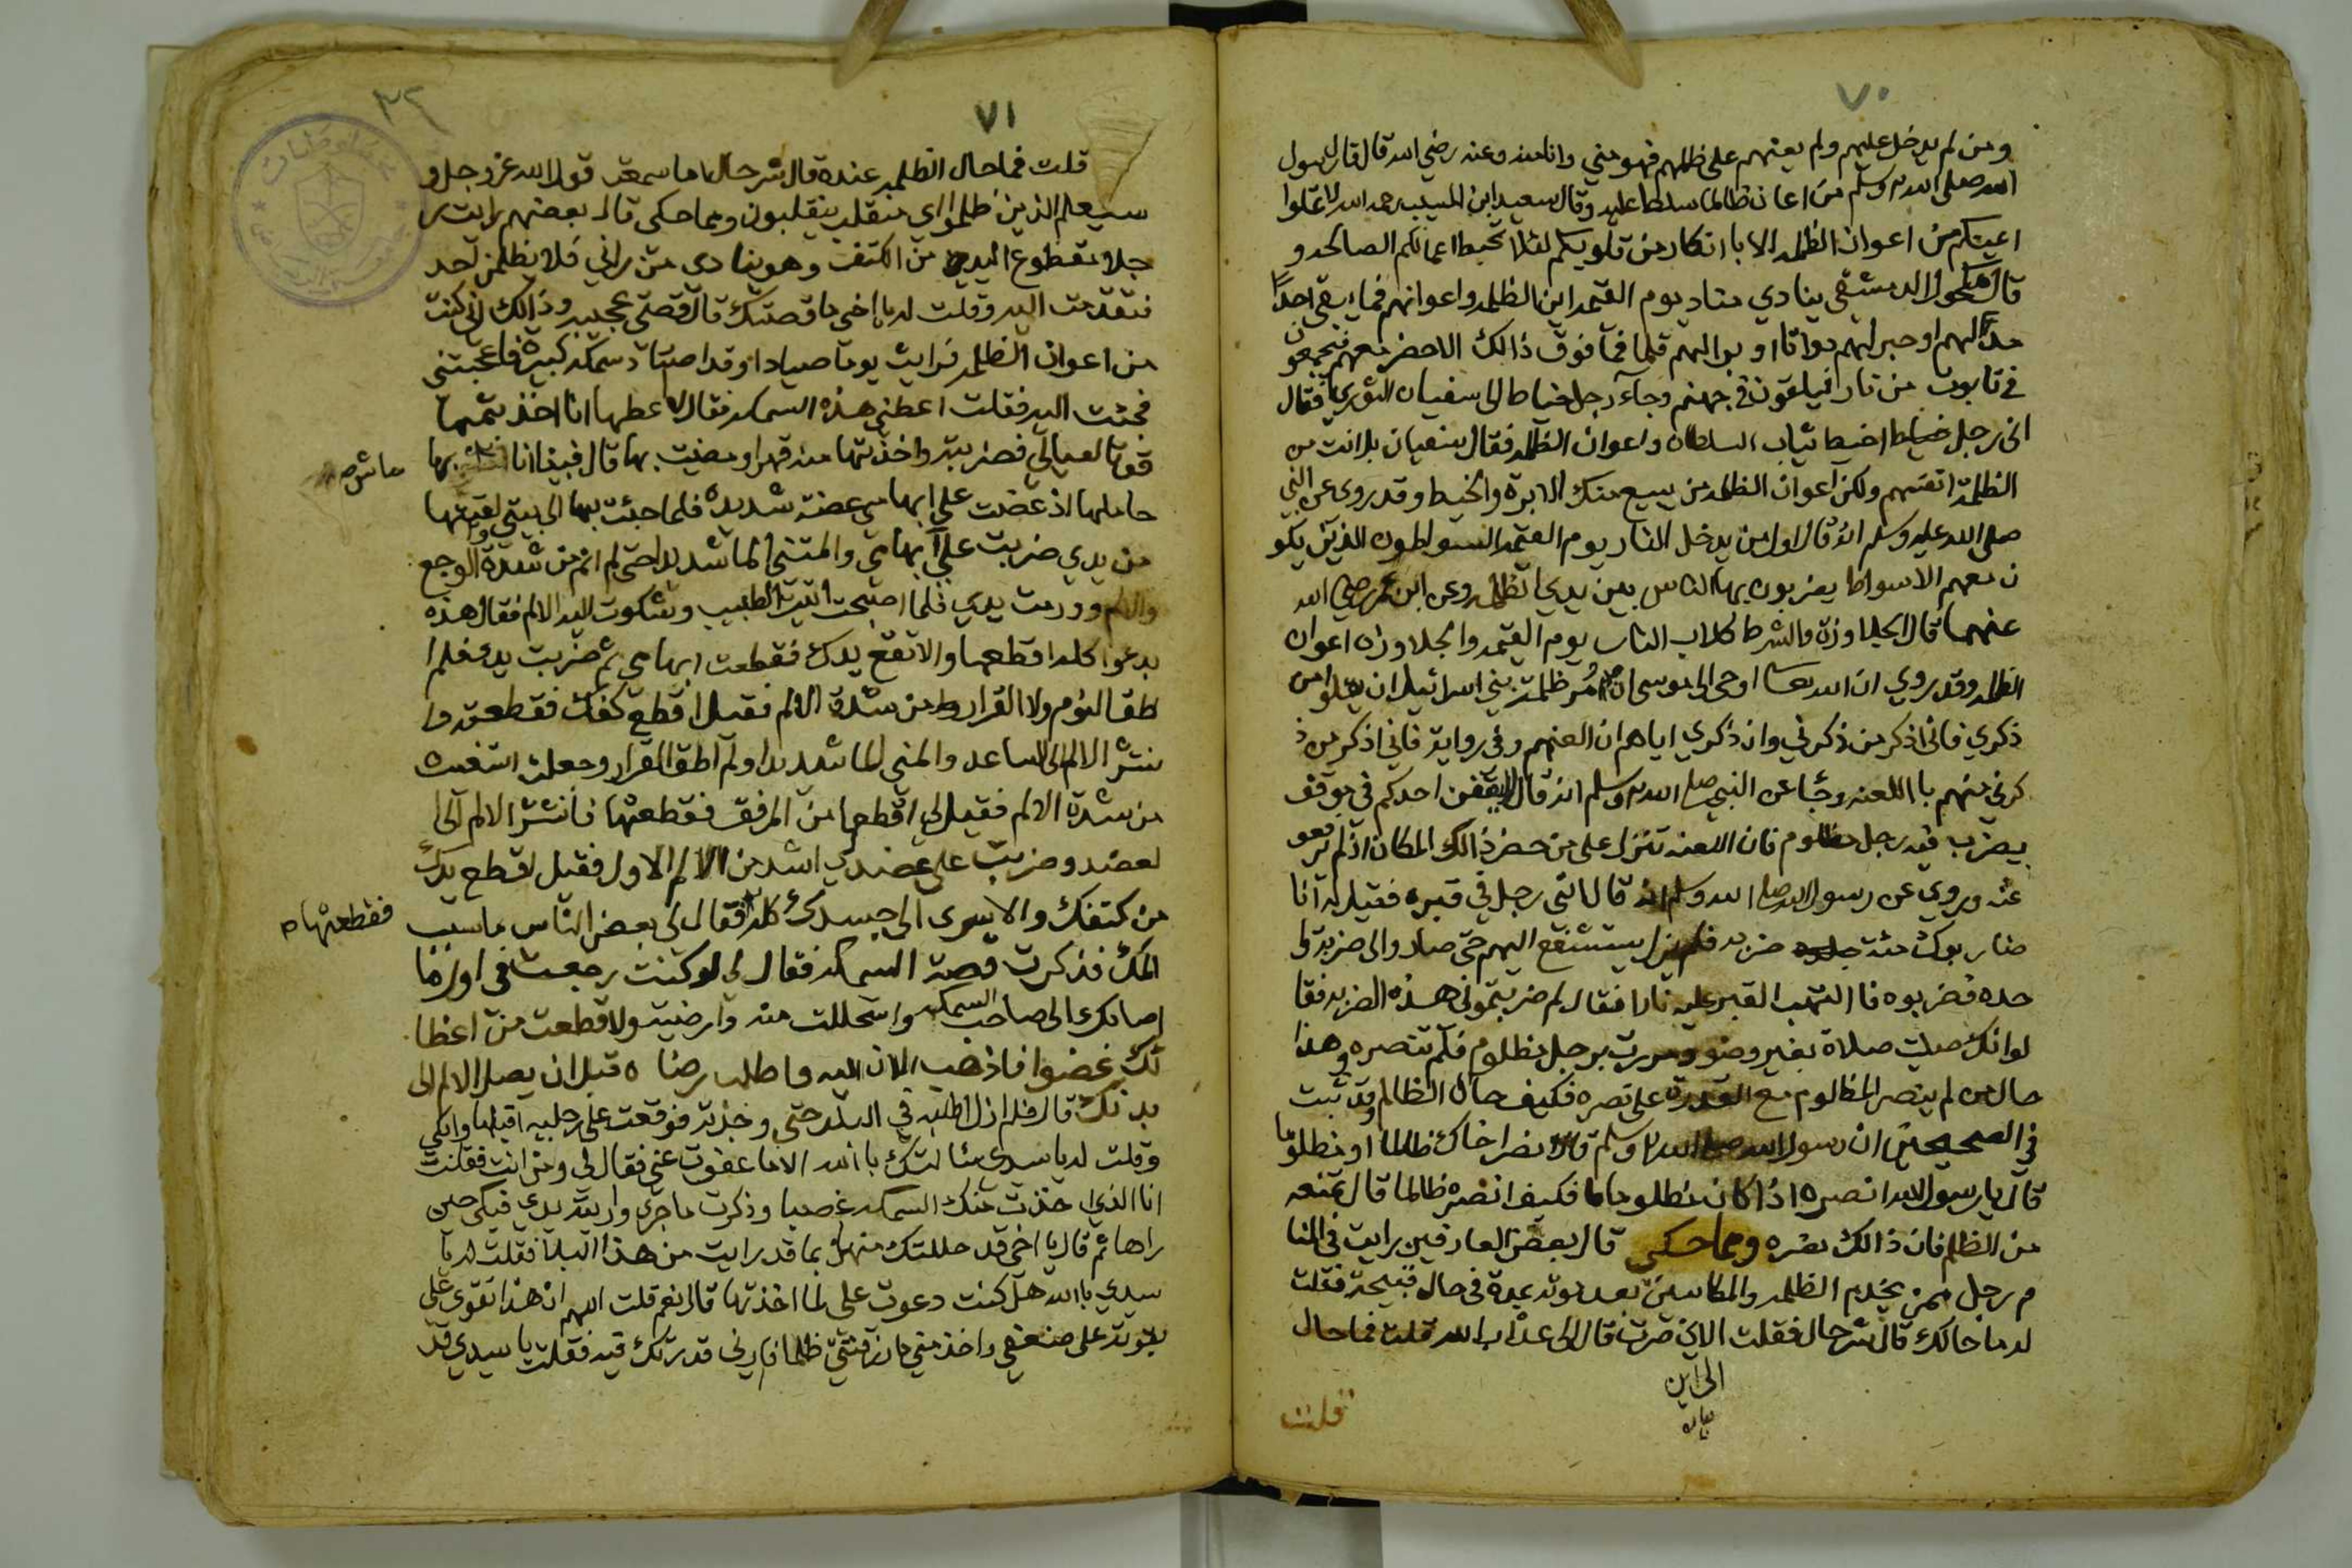 ٧٠
ومن لم يدخل عليهم ولم يعنهم على ظلمهم فهو مني وانا منه وعنه رضي الله قال قال رسول
الله صلى الله وسلم من اعان ظالما سلط عليه وقال سعيد ابن المسيب رحمه الله لا تملوا
اعينكم من اعوان الظلمه الا با انكار من قلوبكم لئلا تحبط اعمالكم الصالحه و
قال مكحول الدمشقي ينادي مناد يوم القيمه اين الظلمه واعوانهم فما يبقى احدًا
مدّ لهم او حبر لهم دواتا او بر الهم قلما فما فوق ذالك الا حضر معهم فيجمعون
في تابوت من نار فيلقون في جهنم وجآء رجل خياط الى سفيان الثوري فقال
انى رجل خياط اخيط ثياب السلطان واعوان الظلمه فقال سفيان بل انت من
الظلمة انفسهم ولكن اعوان الظلمه من يبيع منك الابرة والخيط وقد روي عن النبي
صلى الله عليه وسلم انه قال اول من يدخل النار يوم القيمه السواطون الذين يكو
ن معهم الاسواط يضربون بها الناس بين يدي الظلمه وعن ابن عمر رضي الله
عنهما قال الجلاوزة والشرط كلاب الناس يوم القيمه والجلاوزه اعوان
الظلمه وقد روي ان الله تعا اوحى الى موسى ان مُر ظلمة بني اسرائيل ان يقلوا من
ذكري فانى اذكر من ذكرني وان ذكري اياهم ان العنهم وفي رواية فاني اذكر من ذ
كرني منهم با اللعنه وجا عن النبي صلى الله وسلم انه قال لا يقفن احدكم في موقف
يضرب فيه رجل مظلوم فان اللعنه تنزل على من حضر ذالك المكان اذ لم يدفعو
عنه ويروي عن رسول الله صلى الله وسلم انه قال اتى رجل في قبره فقيل له انا
ضاربوك مئة جلده ضربه فلم يزل يستشفع اليهم حتى صار والى ضربه وا
حده فضربوه فا التهب القبر عليه نارا فقال لم ضربتموني هذه الضربه فقا
لوا انك صليت صلاة بغير وضو ومررت برجل مظلوم فلم تنصره وهذا
حال من لم ينصر المظلوم مع القدرة على نصره فكيف حال الظالم وقد ثبت
في الصحيحين ان رسول الله صلى الله وسلم قال انصر اخاك ظالما او مظلوما
قال يا رسول الله انصره اذا كان مظلوما فكيف انصره ظالما قال تمنعه
من الظلم فان ذالك نصره ومما حكي قال بعض العارفين رايت في المنا
م رجل ممن يخدم الظلمه والمكاسين بعد موته بمدة في حال قبيحة فقلت
له ما حالك قال شر حال فقلت الاين صرت قال الى عذاب الله قلت فما حال
الى اين
بيان
قلت
٧١
٣٢
قلت فما حال الظلمه عنده قال شر حال اما سمعت قول الله عز وجل و
سيعلم الذين ظلموا اي منقلب ينقلبون ومما حكى قال بعضهم رايت ر
جلا مقطوع اليد من الكتف وهو ينادي من راني فلا يظلمن احد
فتقدمت اليه وقلت له يا اخي ما قصتك قال قصتي عجيبه وذالك اني كنت
من اعوان الظلمه فرايت يوما صيادا وقد اصتاد سمكه كبيره فاعجبتني
فجئت اليه فقلت اعطني هذه السمكه فقال لا اعطها انا اخذ بثمنها
قوتا لعيالي فضربته واخذتها منه قهرا ومضيت بها قال فبينا انا بها
ماش
حاملها اذ عضت على ابهامي عضة شديده فلما جئت بها الى بيتي والقيتها
من يدي ضربت علي ابهامي والمتني الما شديدا حتى لم انم من شدة الوجع
والالم وورمت يدي فلما اصبحت اتيت الطبيب وشكوت اليه الالم فقال هذه
بدءوا كله اقطعها والا تقع يدك فقطعت ابهامي ثم ضربت يدي فلم ا
طق النوم ولا القرار من شدة الالم فقيل اقطع كفك فقطعته وا
نتشر الالم الى الساعد والمني الما شديدا ولم اطق القرار وجعلت استغيث
من شدة الالم فقيل لي اقطعها من المرفق فقطعتها فانتشر الالم الى ا
لعضد وضربت على عضدي اشد من الالم الاول فقيل اقطع يدك
من كتفك والا سرى الى جسدك كله فقال لي بعض الناس ما سبب
فقطعتها
المك فذكرت قصة السمكه فقال لي لو كنت رجعت في اول ما
اصابك الى صاحب السمكه واستحللت منه وارضيته ولا قطعت من اعظا
ئك عضوا فاذهب الان اليه واطلب رضاه قبل ان يصل الالم الى
بدنك قال فلم ازل اطلبه في البلد حتى وجذته فوقعت على رجليه اقبلها وابكي
وقلت له يا سيدي سئالتك با الله الا ما عفوت عني فقال لي ومن انت فقلت
انا الذي اخذت منك السمكه غصبا وذكرت ما جرى واريته يدي فبكى حين
راها ثم قال يا اخى قد حاللتك منها بما قد رايت من هذا البلا فقلت له يا
سيدي با الله هل كنت دعوت علي لما اخذتها قال نعم قلت اللهم ان هذا تقوى علي
بقوته على ضعفي واخذ مني ما رزقتني ظلما فارني قدرتك فيه فقلت يا سيدي قد